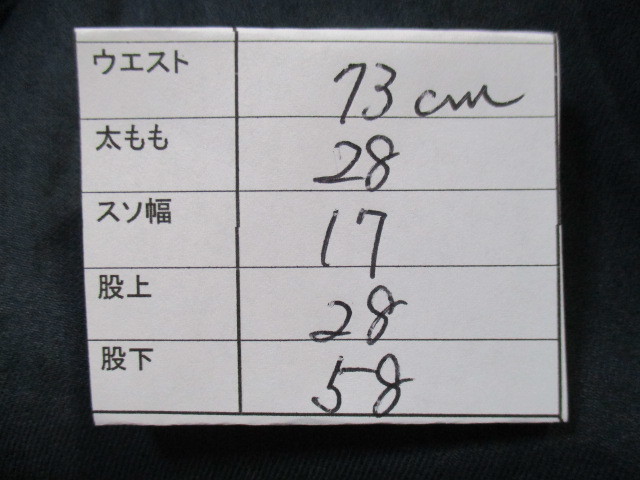 ウエスト 73cm
太もも 28
スソ幅 17
股上 28
股下 58